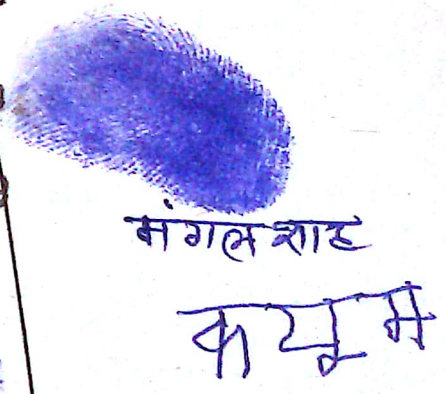 मंगल शाह
कयूम